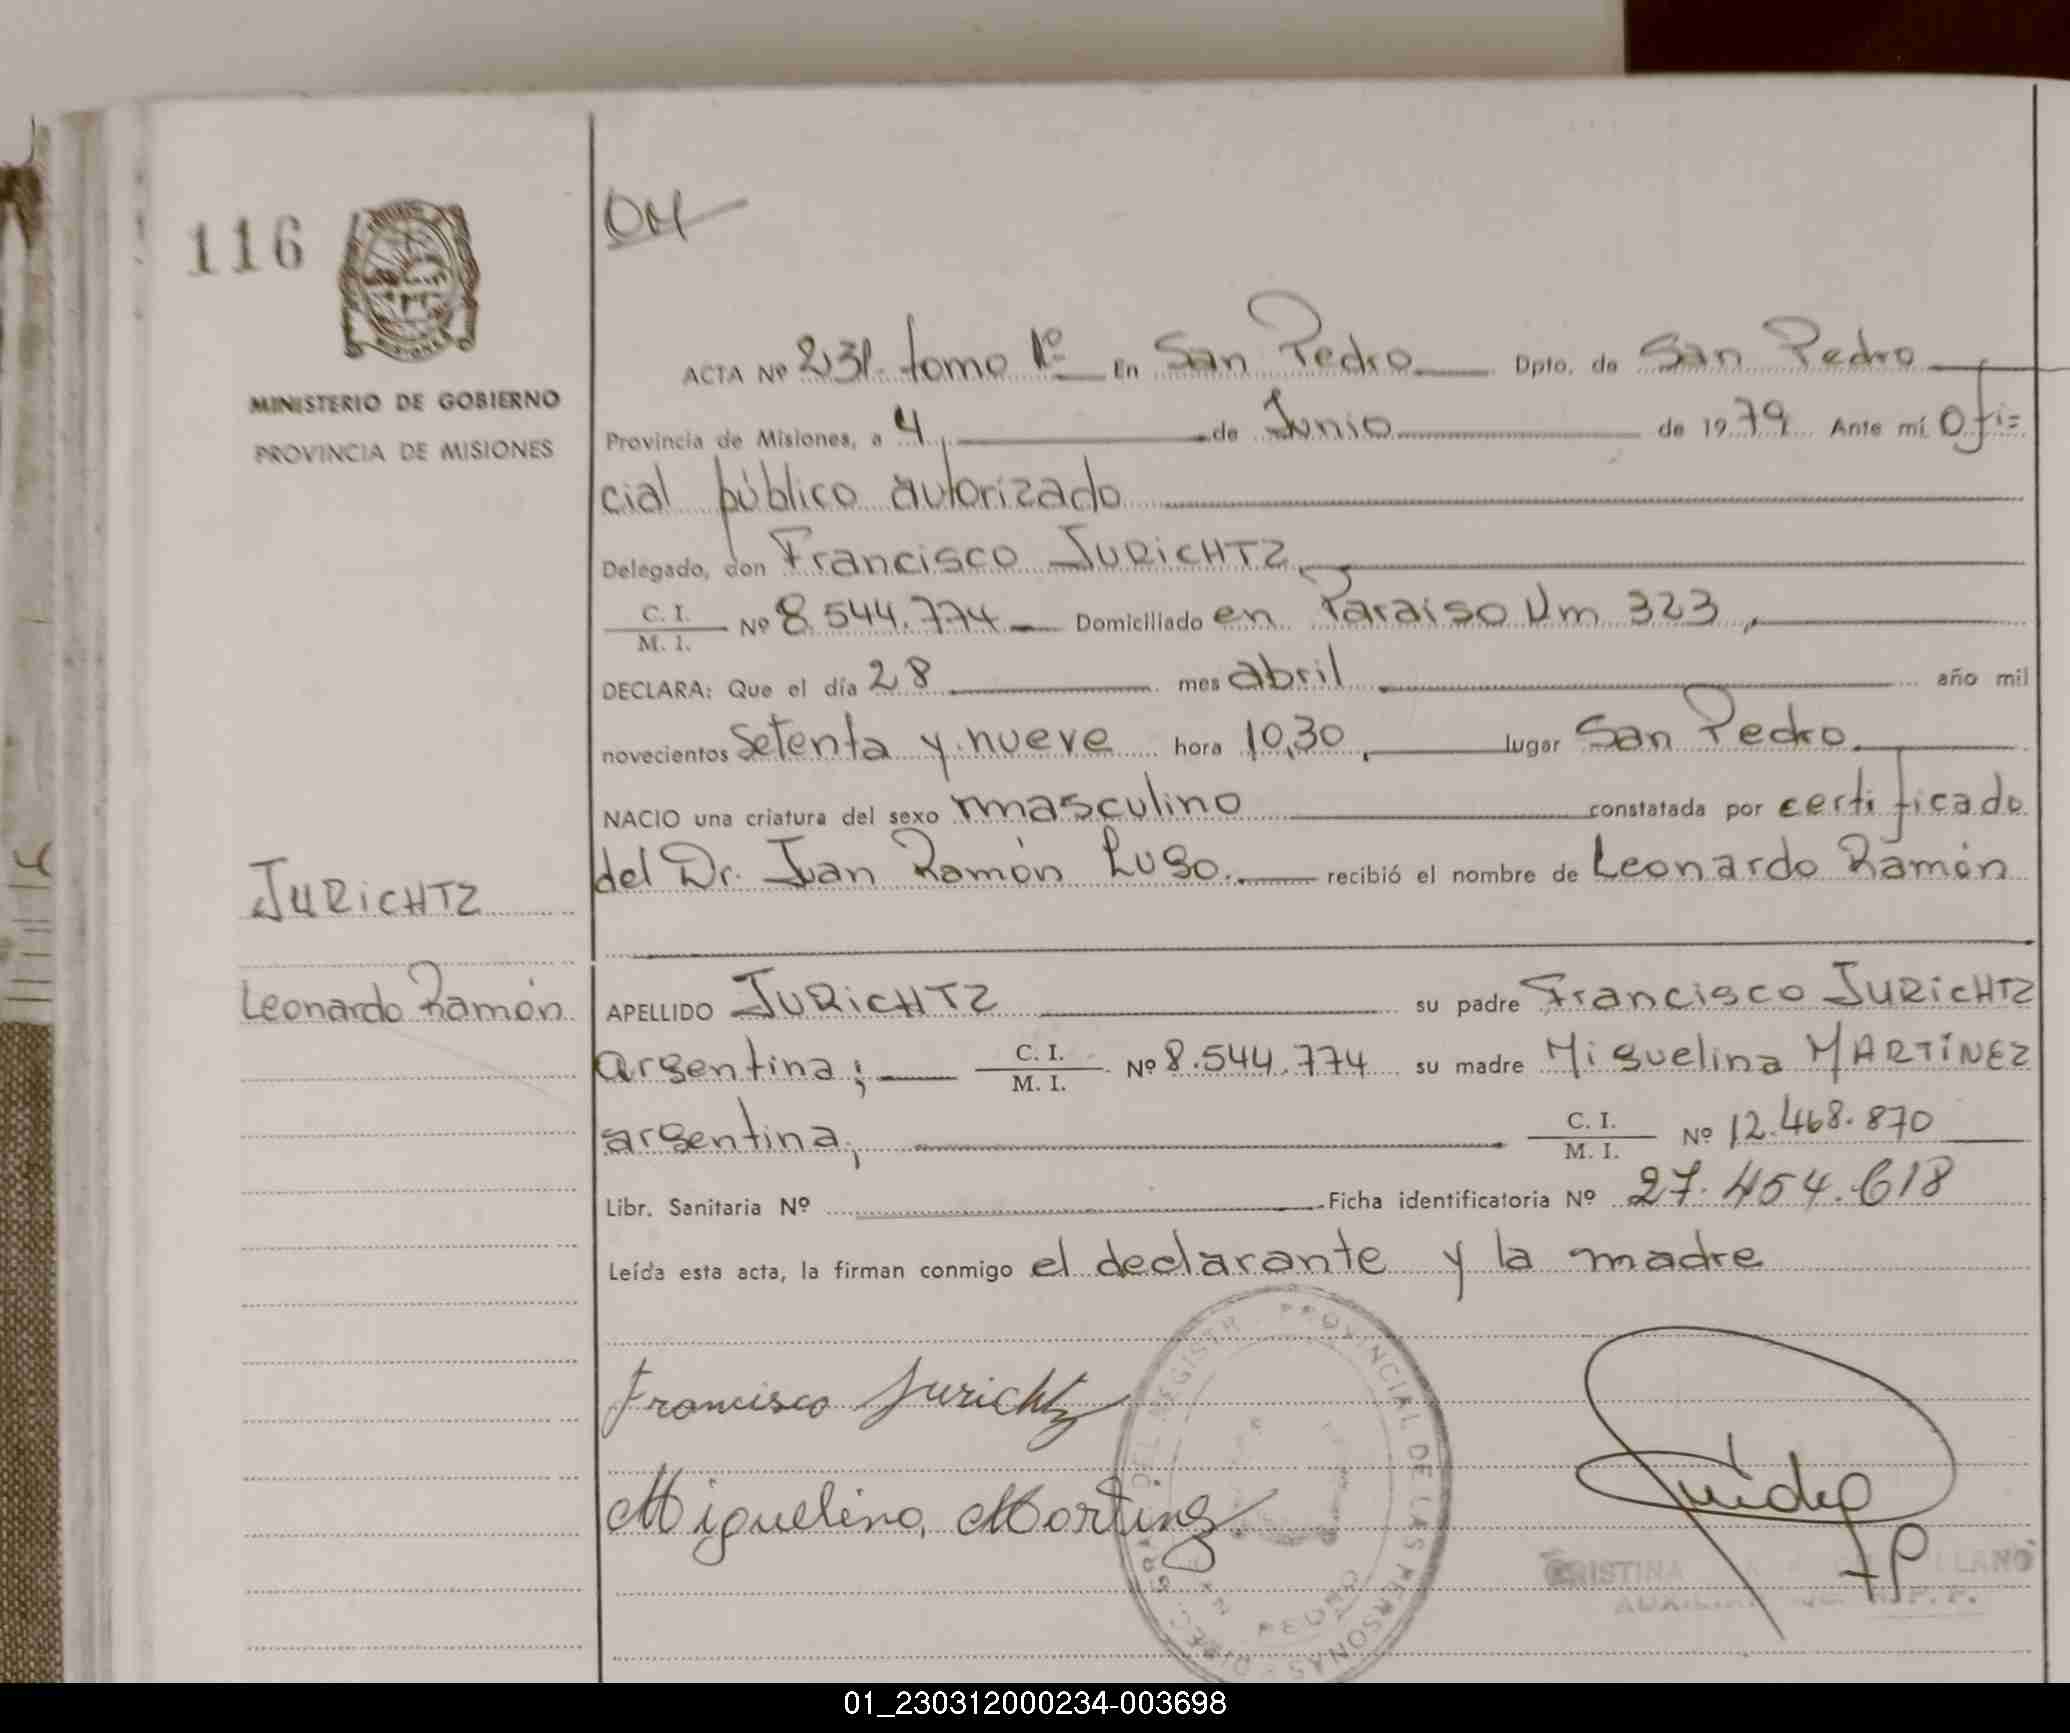 116
OM
ACTA Nº 231 tomo 1º En San Pedro Dpto. de San Pedro
MINISTERIO DE GOBIERNO
PROVINCIA DE MISIONES
Provincia de Misiones, a 4 de Junio de 1979 Ante mí Ofi=
cial público autorizado
Delegado, don Francisco JURiCHTZ
C. I.
M. I.
Nº 8.544.774 Domiciliado en Paraiso Km 323,
DECLARA: Que el día 28 mes abril año mil
novecientos setenta y nueve hora 10,30, lugar San Pedro
NACIO una criatura del sexo masculino constatada por certificado
del Dr. Juan Ramón Lugo. recibió el nombre de Leonardo Ramón
JURiCHTZ
Leonardo Ramón
APELLIDO JURiCHTZ su padre Francisco JURiCHTZ
argentina; C. I. M. I. Nº 8.544.774 su madre Miguelina MARTíNEZ
argentina, C. I. M. I. Nº 12.468.870
Libr. Sanitaria Nº Ficha identificatoria Nº 27.454.618
Leída esta acta, la firman conmigo el declarante y la madre
Francisco Jurichtz
Miguelina Martinez
DIREC. GRAL. DEL REGISTR. PROVINCIAL DE LAS PERSONAS
PEDRO
CRISTINA
01_230312000234-003698